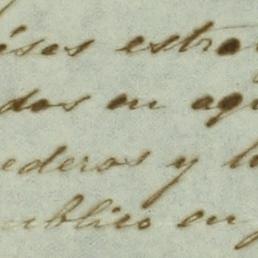 íses estra
dos en aqu
ederos y l
ublico en